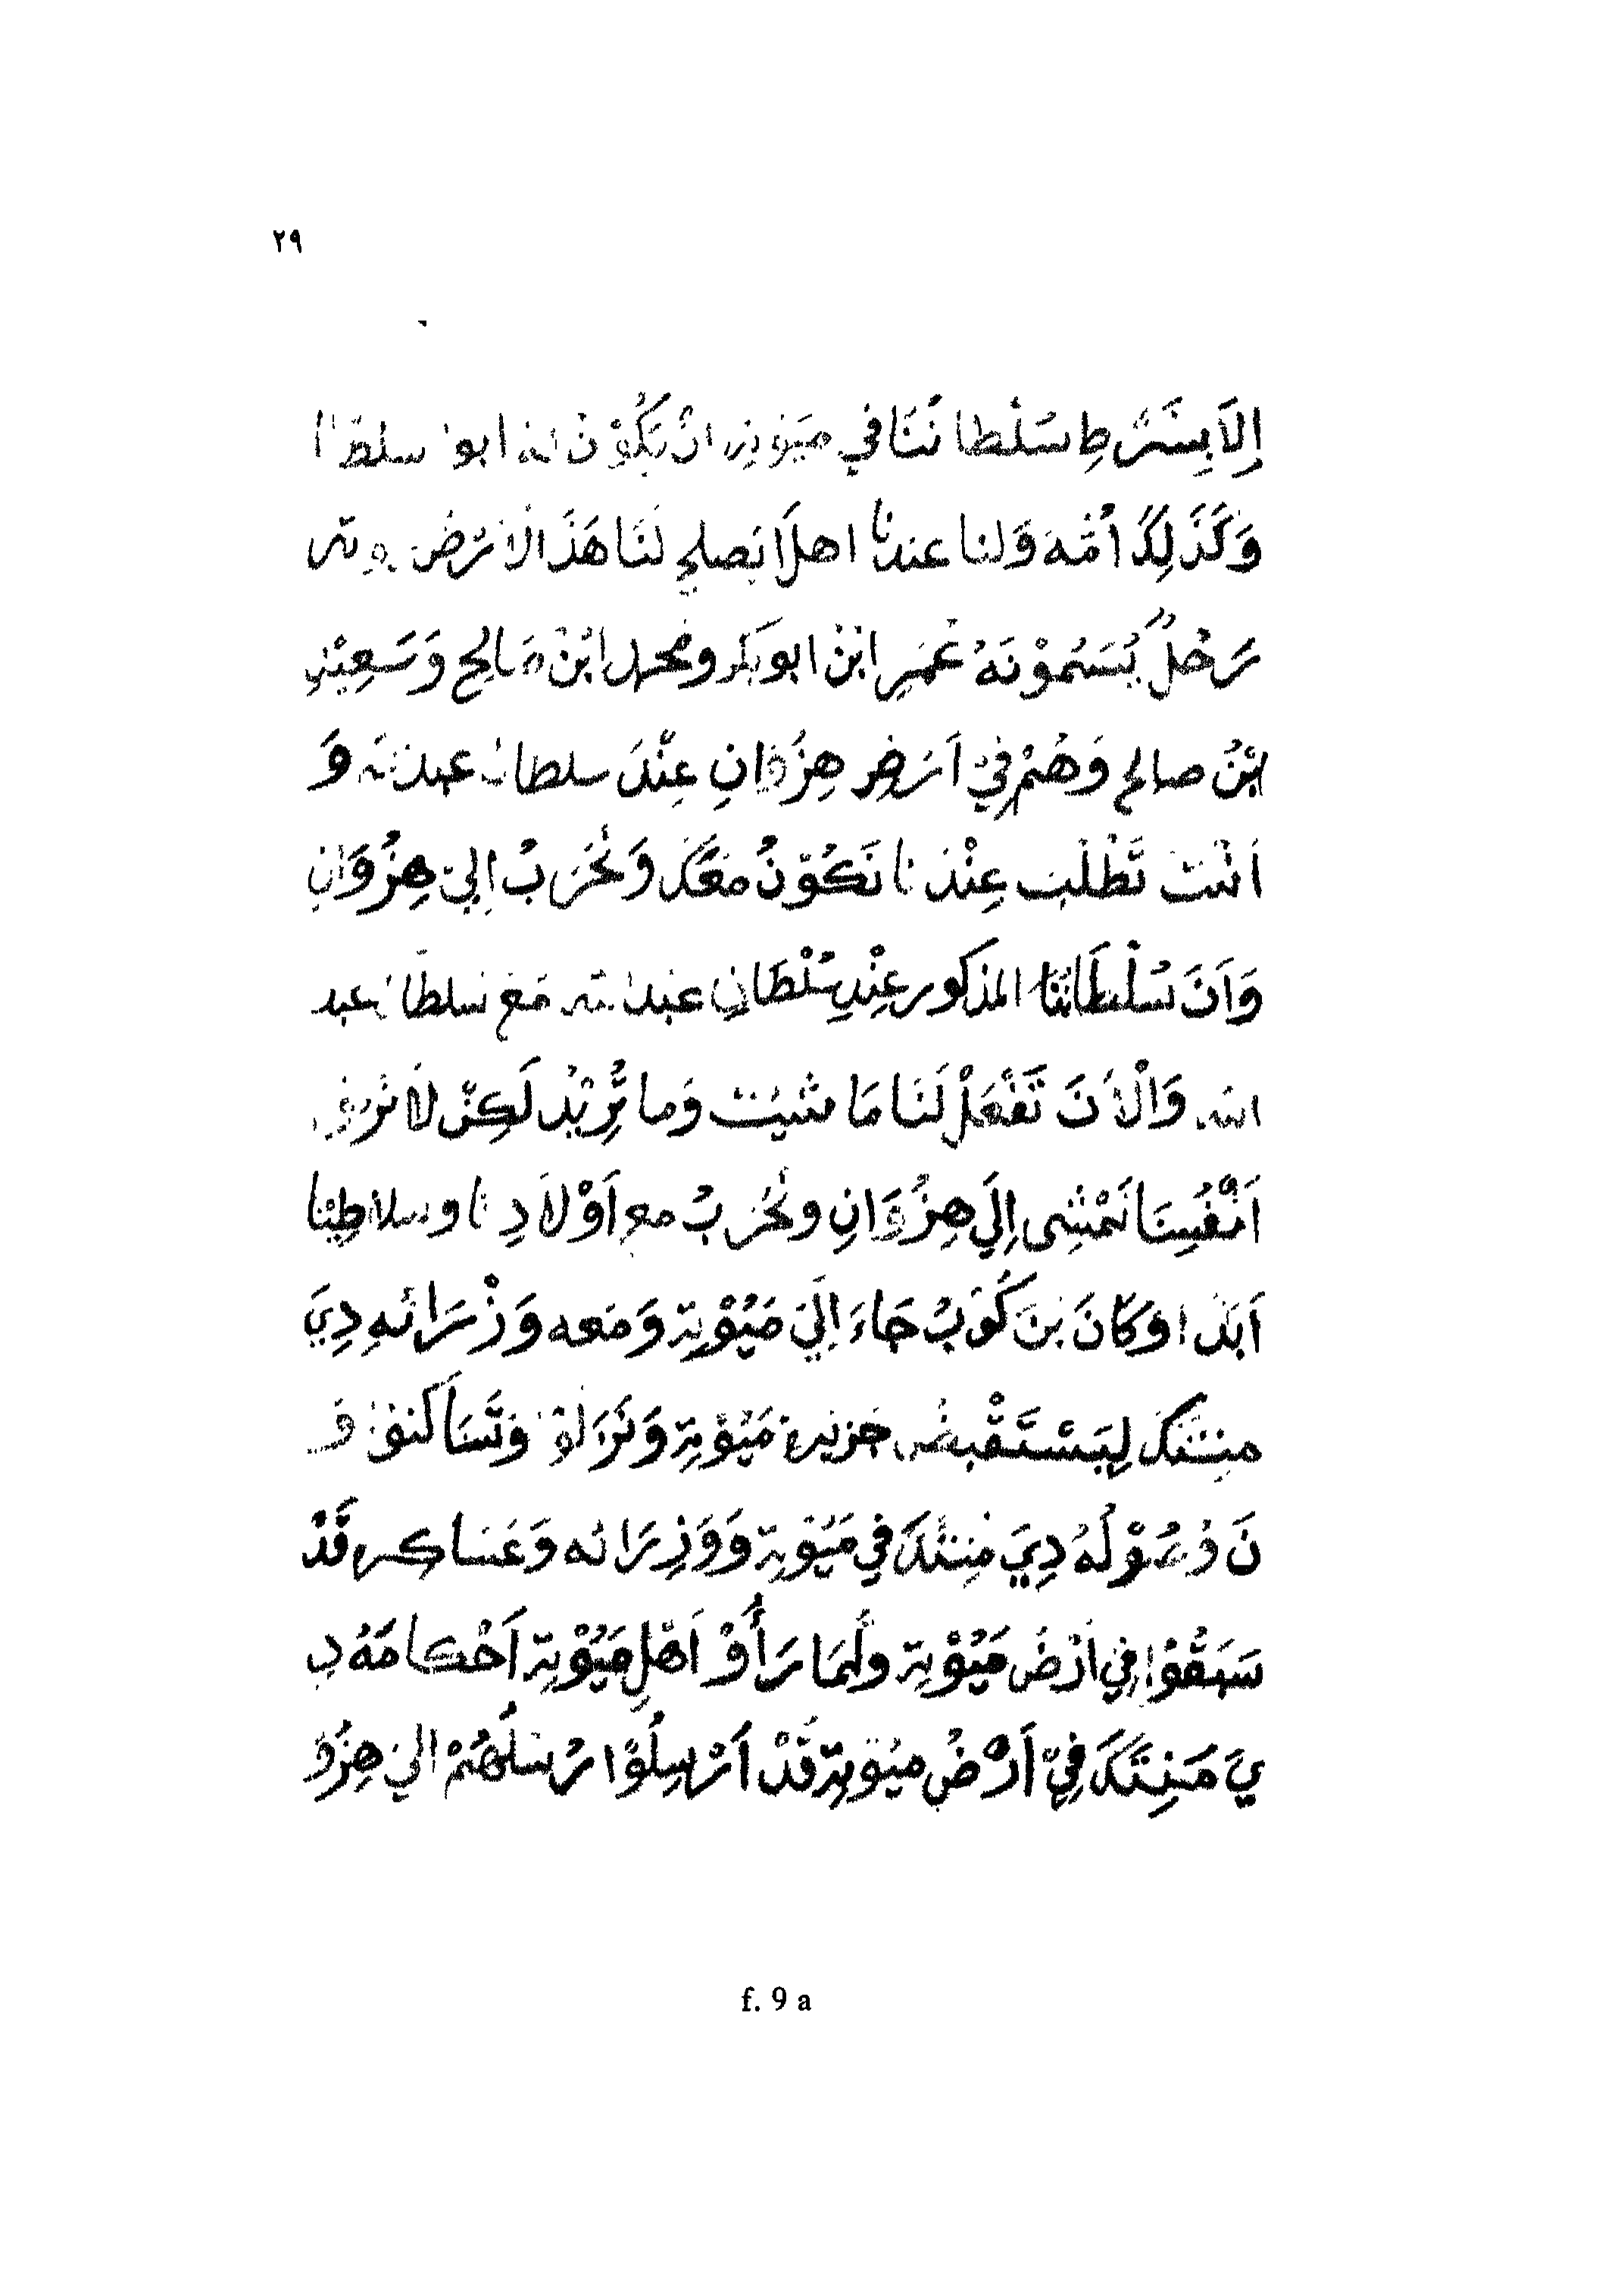 ٢٩
إِلَّا بِشَرْطِ سُلْطَانُنَا فِي مَيُوْتِه انْ يَكُوْنَ ابوا سلطانا
وَكَذَلِكَ أُمُّهُ وَلنا عندنا اهلًا يَصلح لَنَا هَذَ الْاَرْضْ
رَجُلٌ يُسَمُّوْنَهُ عُمَرِ ابْنْ ابوبكر ومحمد ابْنْ صَالِحْ وَسَعِيْدِ
ابْنُ صالح وَهُمْ فِيْ اَرَضِ هِزُوَانِ عِنْدَ سلطان عبدالله وَ
اَنْتَ تَطْلُبْ عِنْدَنَا نَكُوْنُ مَعَكَ وَنُحَرَبُ اِلِيَّ هِزُوَانِ
وَاَنَ سُلْطَانُنَا المذكور عِنْدِ سُلْطَانِ عبدالله مَعَ سلطان عبد
الله وَالْاَنَ تَفْعَلْ لَنَا مَا شئيت وَما تُرِيْدُ لَكِنْ لَا نُرِيْدُ
اَنْفُسِنَا نَمْشِى اِلَي هِزُوَانِ ونُحَرَبُ معِ اَوْلَادِنا وسلاطِيْنا
اَبَدًا وَكَانَ بَنَ كُوَبُ جَاءَ اِلَيَ مَيُوْتِة وَمَعه وَزْرَائهِ دِيَ
مَنِتَنكَ لِيَسْتَقْبِضُ جَزيرة مَيُوْتِة وَنَزَلُوْ وَتَسَاكَنُوْ وَ
نَ دُعُوْلَهُ دِيَ مَنِتَنكَ فِي مَيُوْتِة وَوَزِرَائه وَعَسَاكِره قَدْ
سَبَقُوْا فِي اَرْضُ مَيُوْتِة ولَمَا رَأَوْ اَهْلِ مَيُوْتِة اَحْكامَهُ دِ
يَ مَنِتَنكَ فِيْ اَرْضُ مَيُوْتِة قَدْ اَرْسِلُوْا رُسُلُهُمْ الي هِزُوَ
f. 9 a